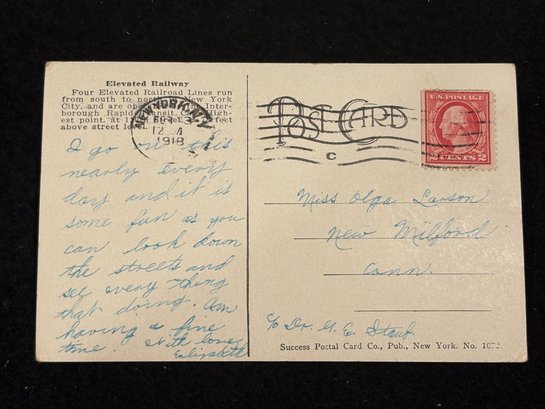 Elevated Railway
Four Elevated Railroad Lines run
from south to York
City, and are Inter-
borough Rapid
est point, at feet
above street level.
NEW YORK, N.Y.
12 A
1918
POST CARD
C
U.S. POSTAGE
2 CENTS 2
I go on this
nearly every
day and it is
some fun as you
can look down
the streets and
see every thing
that doing. Am
having a fine
time. With love
Elizabeth
Miss Olga Larson
New Milford
Conn.
c/o Dr. E. Staub
Success Postal Card Co., Pub., New York. No.